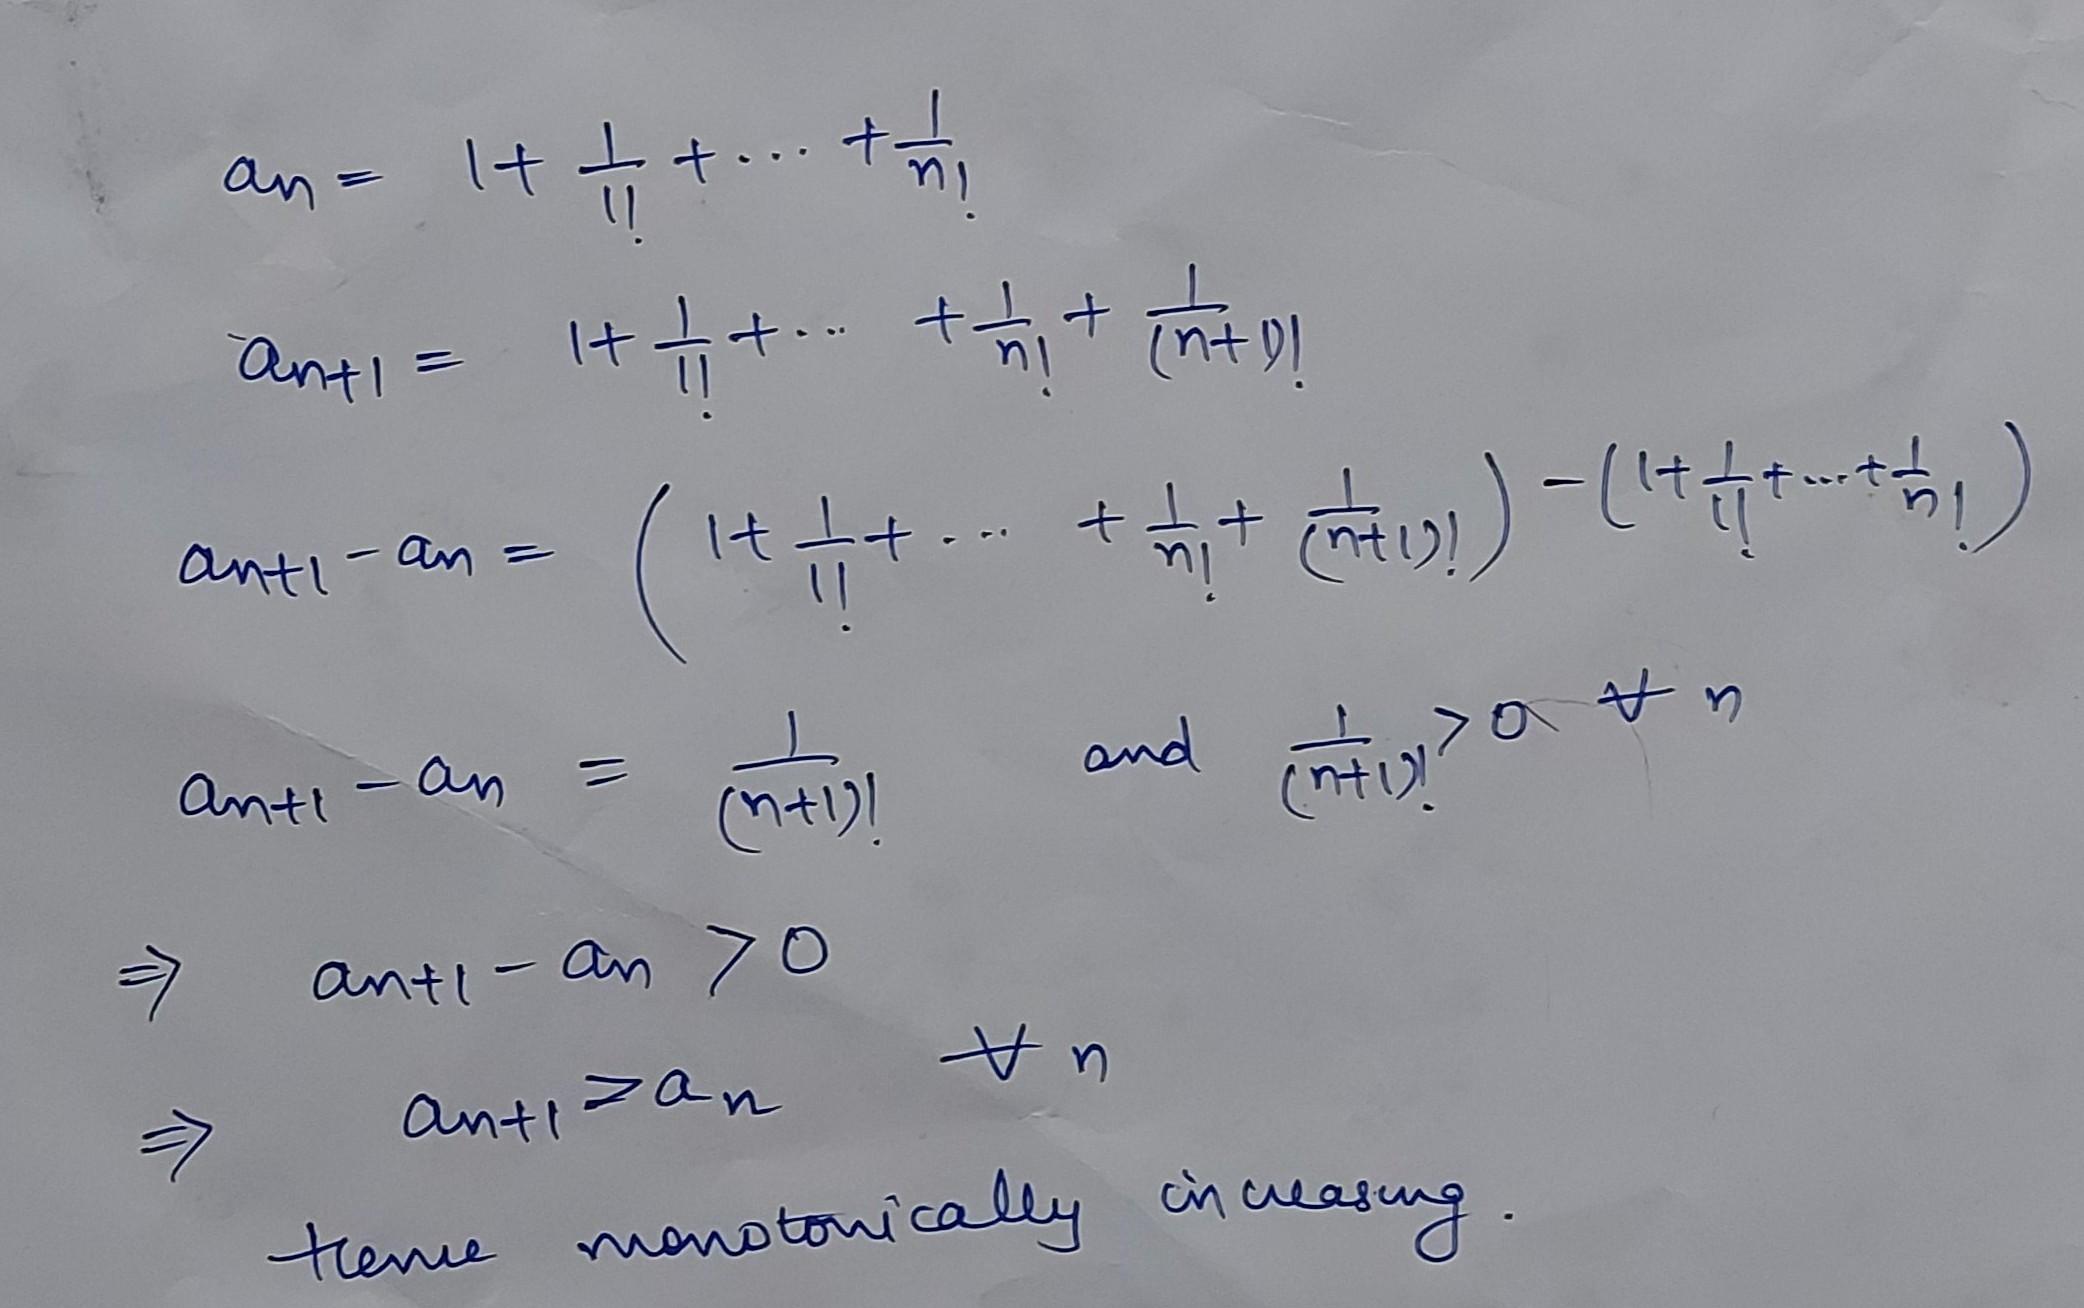 an = 1 + 1/1! + ... + 1/n!
an+1 = 1 + 1/1! + ... + 1/n! + 1/(n+1)!
an+1 - an = (1 + 1/1! + ... + 1/n! + 1/(n+1)!) - (1 + 1/1! + ... + 1/n!)
an+1 - an = 1/(n+1)! and 1/(n+1)! > 0 ∀ n
⇒ an+1 - an > 0
⇒ an+1 > an ∀ n
Hence monotonically increasing.